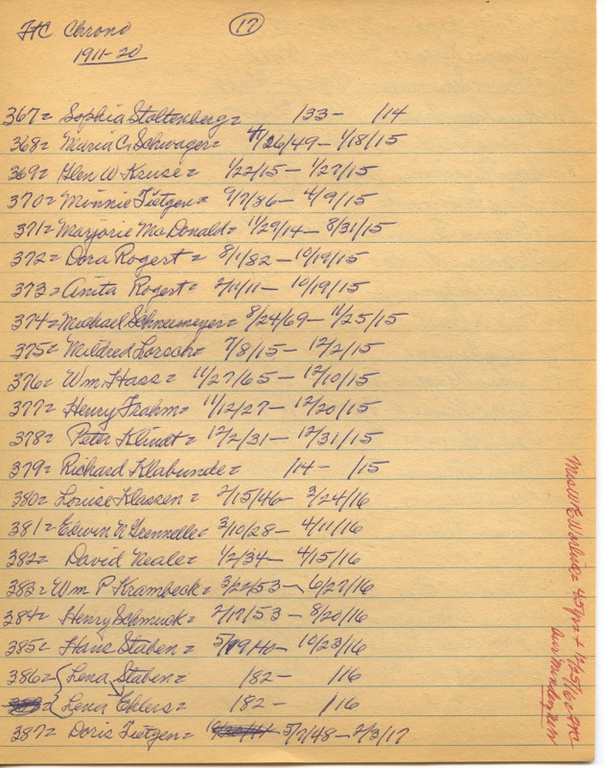 FHC Chrono (17)
1911-20
367= Sophia Stoltenberg= /33- /14
368= Maria C. Schwager= 4/26/49- 1/18/15
369= Glen W Kruse= 1/22/15- 1/27/15
370= Minnie Tietgen= 9/7/86- 4/9/15
371= Marjorie McDonald= 11/29/14- 8/31/15
372= Dora Rogert= 8/1/82- 10/19/15
373= Anita Rogert= 2/11/11- 10/19/15
374= Michael Schneumeyer= 8/24/69- 11/25/15
375= Mildred Lorsch= 7/8/15- 12/2/15
376= Wm. Hass= 11/27/65- 12/10/15
377= Henry Frahm= 11/12/27- 12/20/15
378= Peter Klindt= 12/2/31- 12/31/15
379= Richard Klabunde= /14- /15
380= Louise Klassen= 2/15/46- 3/24/16
381= Edwin N Grennelle= 3/10/28- 4/11/16
382= David Neale= 1/2/34- 4/15/16
383= Wm P Krambeck= 3/22/53- 6/27/16
384= Henry Schmuck= 2/17/53- 8/20/16
385= Hans Staben= 5/19/40- 10/23/16
386= Lena Staben= 182- /16
Lena Ehlers= 182- /16
387= Doris Tietgen= 5/7/48- 2/3/17
Mrs W E = 45yrs + 12/25/16=